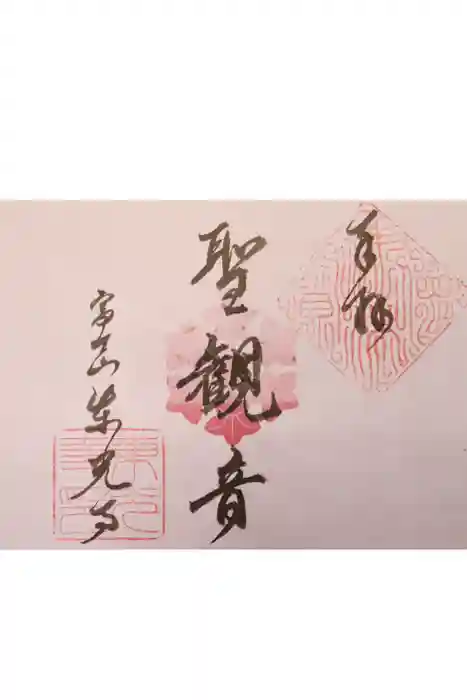 奉拝
聖観音
富山東光寺